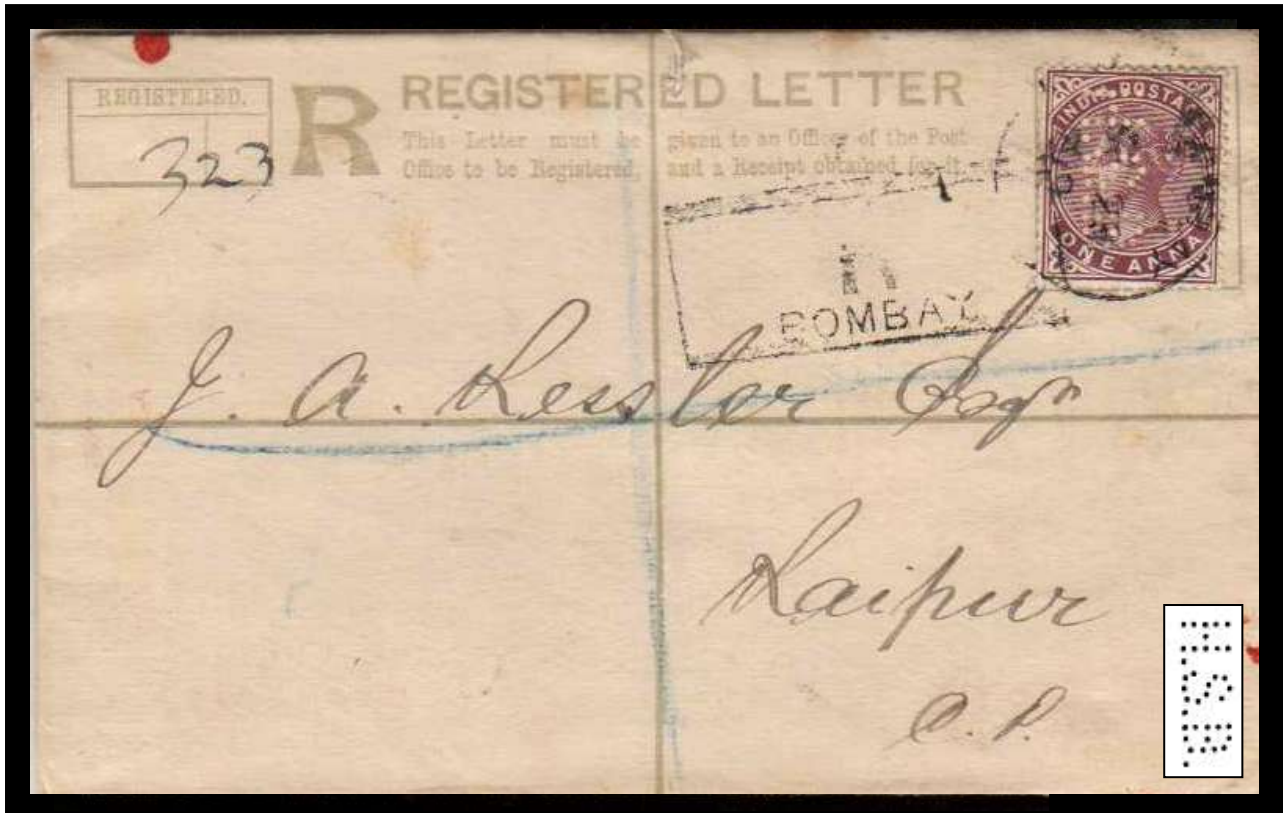 REGISTERED.
323
R
REGISTERED LETTER
This Letter must be given to an Officer of the Post
Office to be Registered, and a Receipt obtained for it.
INDIA POSTAGE
ONE ANNA
R
BOMBAY
J. A. Kessler Esqr
Raipur
C. P.
HSB